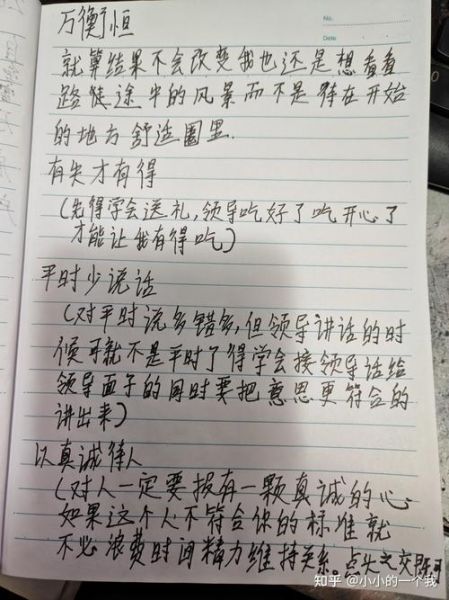 万衡恒
No.
Date
就算结果不会改变我也还是想看看
路途途中的风景而不是待在开始
的地方舒适圈里.
有失才有得
(先得学会送礼,领导吃好了吃开心了
才能让我有得吃)
平时少说话
(对平时说多错多,但领导讲话的时
候可就不是平时了得学会接领导话给
领导面子的同时要把意思更符合的
讲出来)
以真诚待人
(对人一定要拥有一颗真诚的心
如果这个人不符合你的标准就
不必浪费时间精力维持关系。点头之交即可
知乎 @小小的一个我